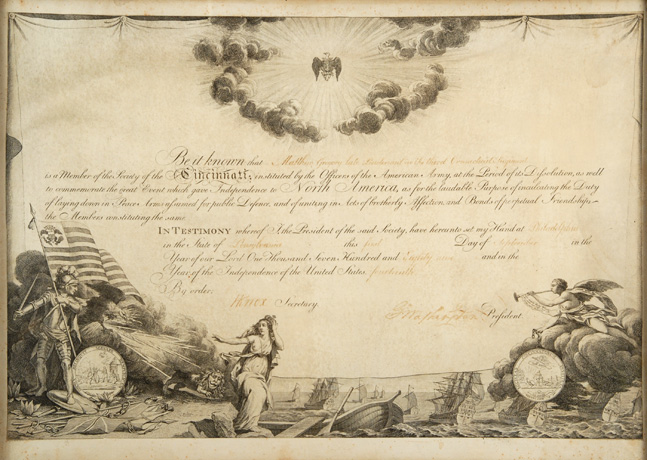 Be it known that Matthew Gregory late Lieutenant in the Third Connecticut Regiment
is a Member of the Society of the Cincinnati; instituted by the Officers of the American Army, at the Period of its Dissolution, as well
to commemorate the great Event which gave Independence to North America, as for the laudable Purpose of inculcating the Duty
of laying down in Peace Arms assumed for public Defence, and of uniting in Acts of brotherly Affection, and Bonds of perpetual Friendship,
the Members constituting the same.
In Testimony whereof I, the President of the said Society, have hereunto set my Hand at Philadelphia
in the State of Pennsylvania this first Day of September in the
Year of our Lord One Thousand Seven Hundred and Eighty and in the
Year of the Independence of the United States fourteenth
By order,
HKnox Secretary.
GWashington President.